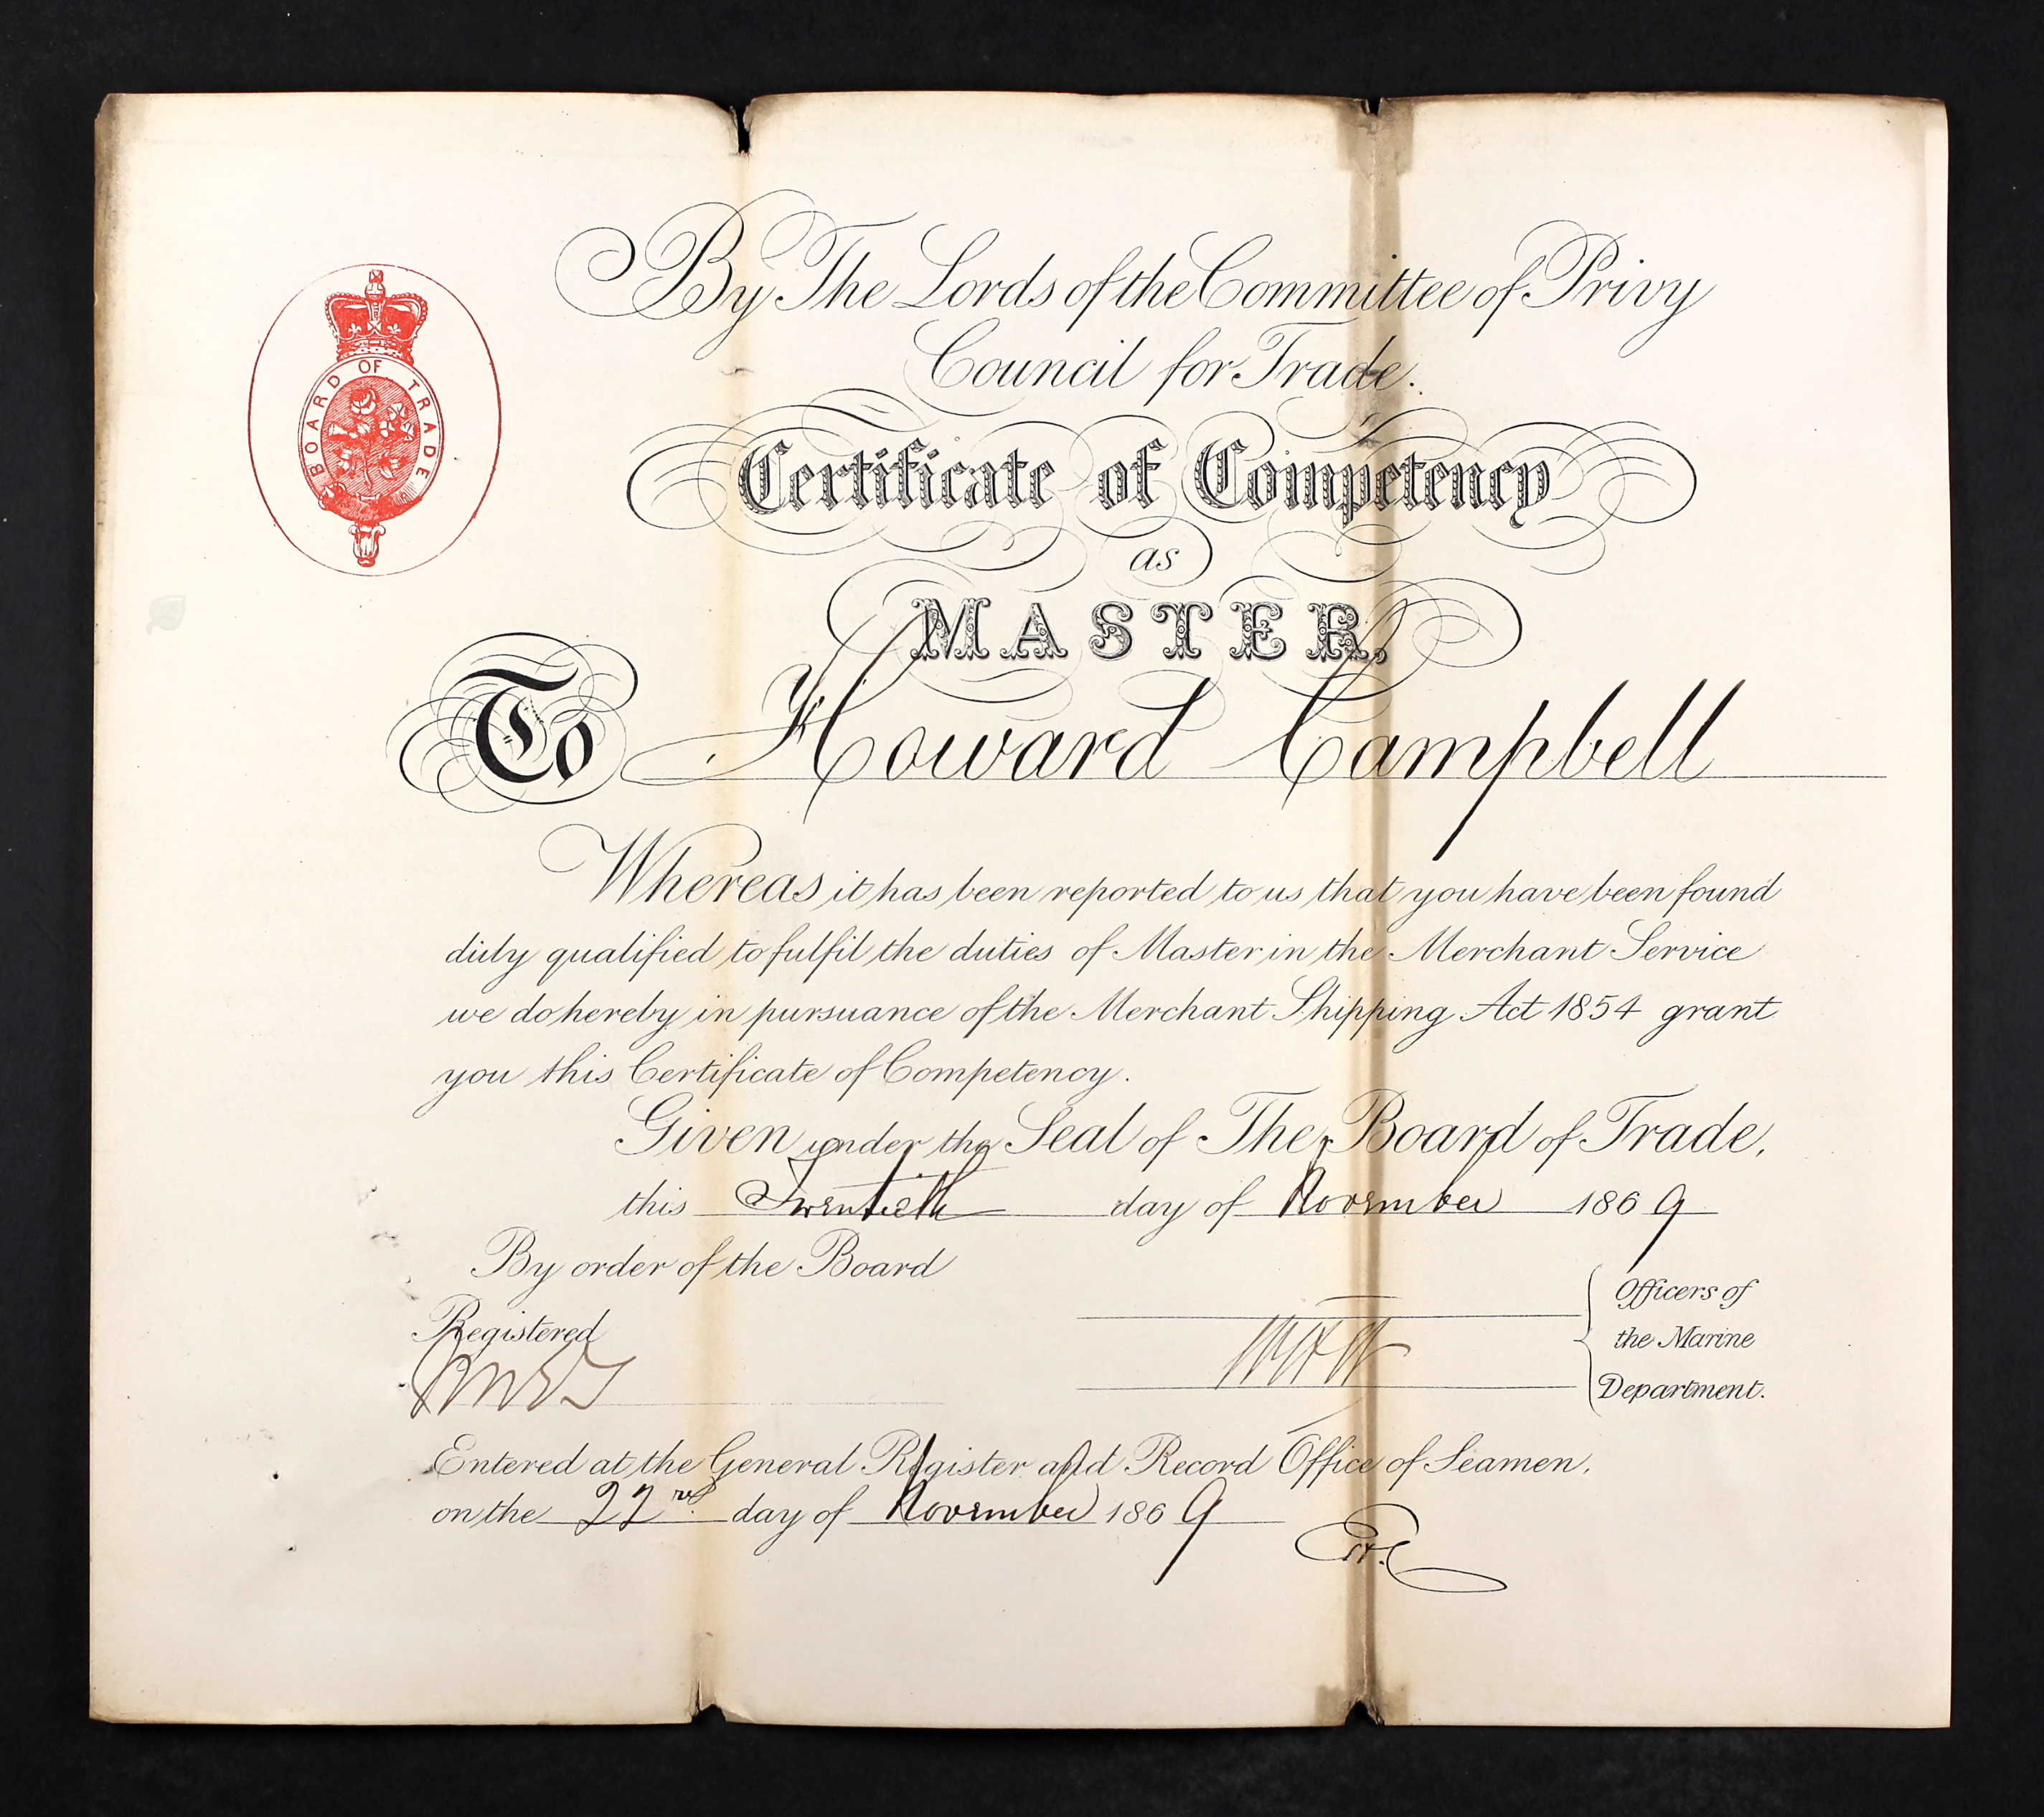 BOARD OF TRADE
By The Lords of the Committee of Privy
Council for Trade.
Certificate of Competency
as
MASTER.
To Howard Campbell
Whereas it has been reported to us that you have been found
duly qualified to fulfil the duties of Master in the Merchant Service
we do hereby in pursuance of the Merchant Shipping Act 1854 grant
you this Certificate of Competency.
Given under the Seal of The Board of Trade,
this Twentieth day of November 1869
By order of the Board
Officers of
the Marine
Department.
Registered
Entered at the General Register and Record Office of Seamen,
on the 22nd day of November 1869